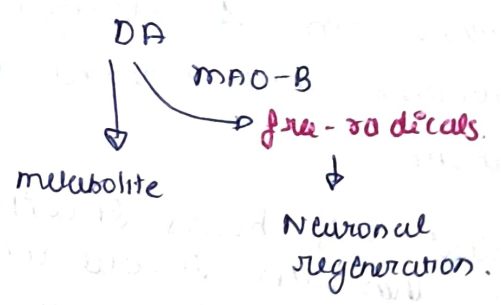 DA
MAO-B
free-radicals.
metabolite
Neuronal
regeneration.